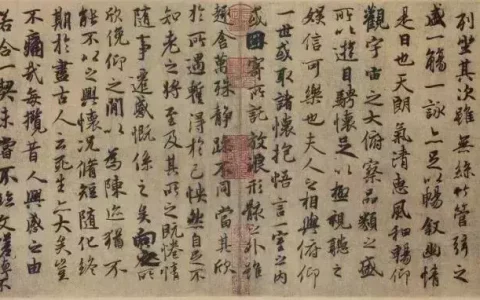 列坐其次雖無絲竹管弦之
盛一觴一詠亦足以暢敘幽情
是日也天朗氣清惠風和暢仰
觀宇宙之大俯察品類之盛
所以遊目騁懷足以極視聽之
娛信可樂也夫人之相與俯仰
一世或取諸懷抱悟言一室之內
或因寄所託放浪形骸之外雖
趣舍萬殊靜躁不同當其欣
於所遇蹔得於己怏然自足不
知老之將至及其所之既惓情
隨事遷感慨係之矣向之所
欣俛仰之閒以為陳迹猶不
能不以之興懷況脩短隨化終
期於盡古人云死生亦大矣豈
不痛哉每攬昔人興感之由
若合一契未嘗不臨文嗟悼不